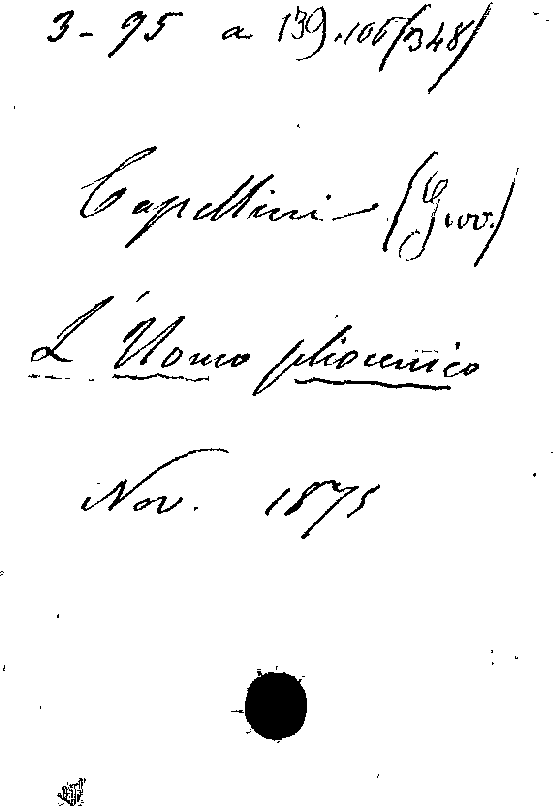 3-95 a 139.105(348)
Capellini (Giov.)
L'Uomo pliocenico
Nov. 1875